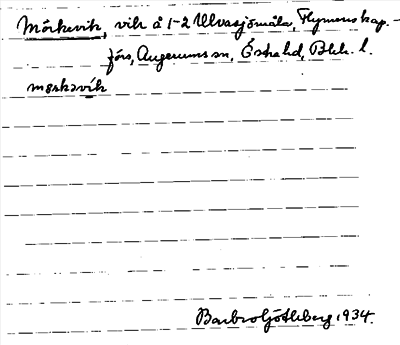 Mörkevik, vik å 1-2 Ulvasjömåla, Flymens kap.-
förs, Augerums sn, Östra hd, Blek. l.
mørkavík
Barbro Götlberg 1934.